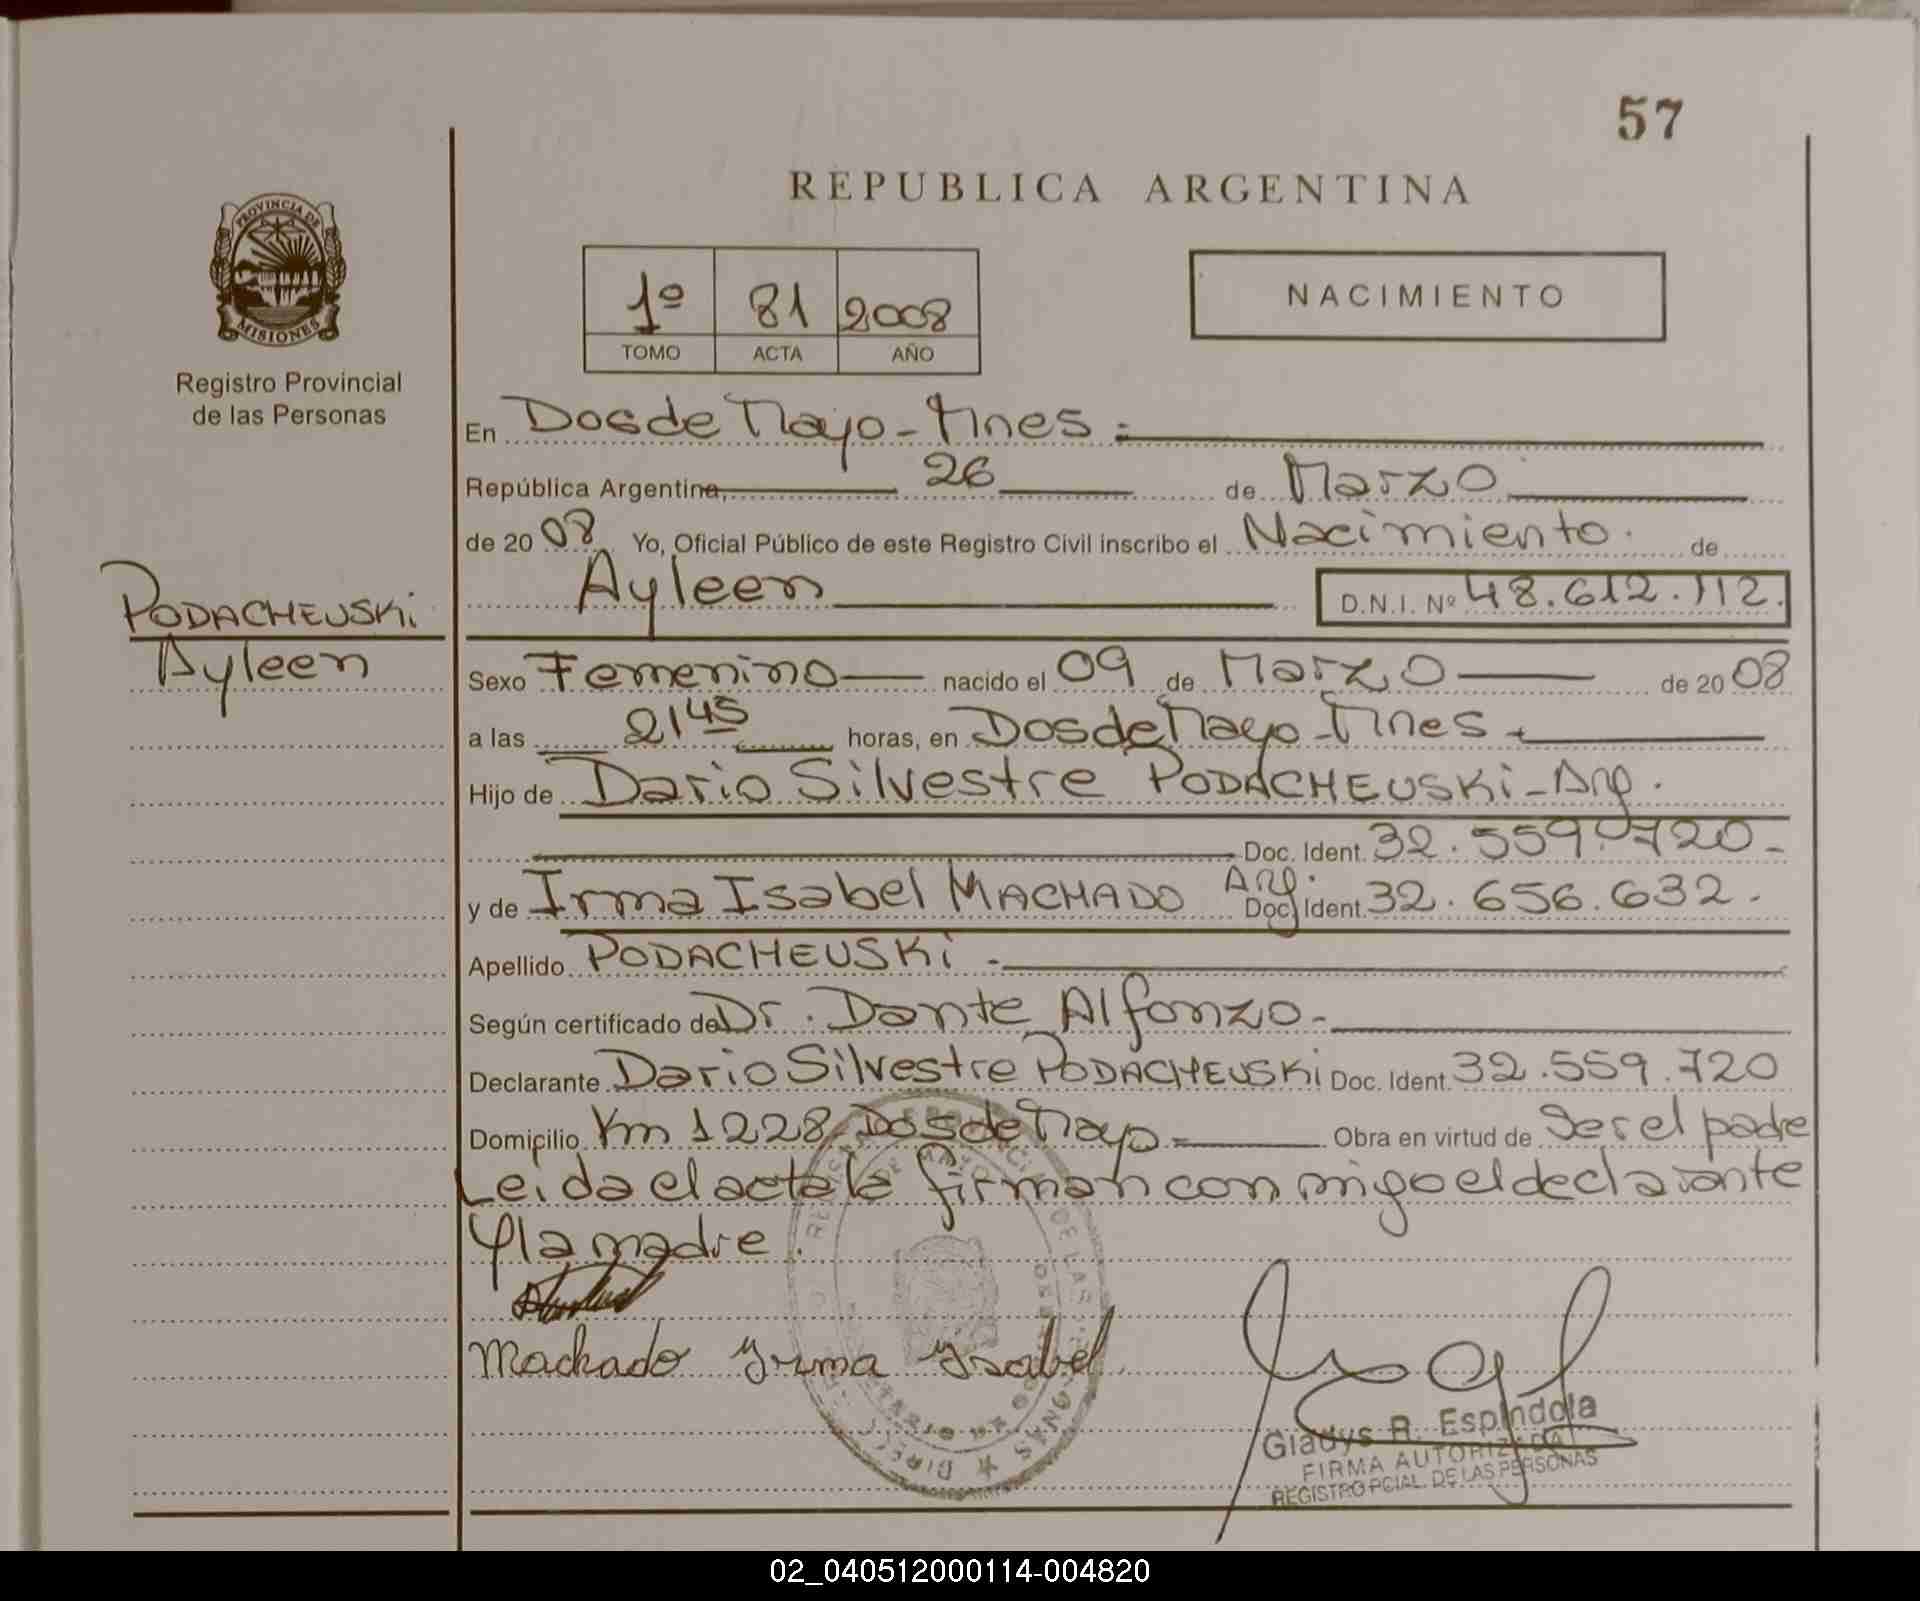 57
REPUBLICA ARGENTINA
PROVINCIA DE
MISIONES
Registro Provincial
de las Personas
1º 81 2008
TOMO ACTA AÑO
NACIMIENTO
En Dos de Mayo - Mnes -
República Argentina, 26 de Marzo
de 2008 Yo, Oficial Público de este Registro Civil inscribo el Nacimiento. de
Ayleen D.N.I. Nº 48.612.112.
PODACHEUSKi
Ayleen
Sexo Femenino nacido el 09 de Marzo de 2008
a las 21 45 horas, en Dos de Mayo - Mnes -
Hijo de Dario Silvestre PODACHEUSKi - Arg.
Doc. Ident. 32.559.720 -
y de Irma Isabel MACHADO Arg. Doc. Ident. 32.656.632.
Apellido PODACHEUSKi -
Según certificado de Dr. Dante Alfonzo -
Declarante Dario Silvestre PODACHEUSKi Doc. Ident. 32.559.720
Domicilio Km 1228 Dos de Mayo - Obra en virtud de Ser el padre
Leida el acta la firman con migo el declarante
y la madre.
Machado Yrma Ysabel
Gladys R. Espindola
FIRMA AUTORIZADA
REGISTRO PCIAL. DE LAS PERSONAS
02_040512000114-004820